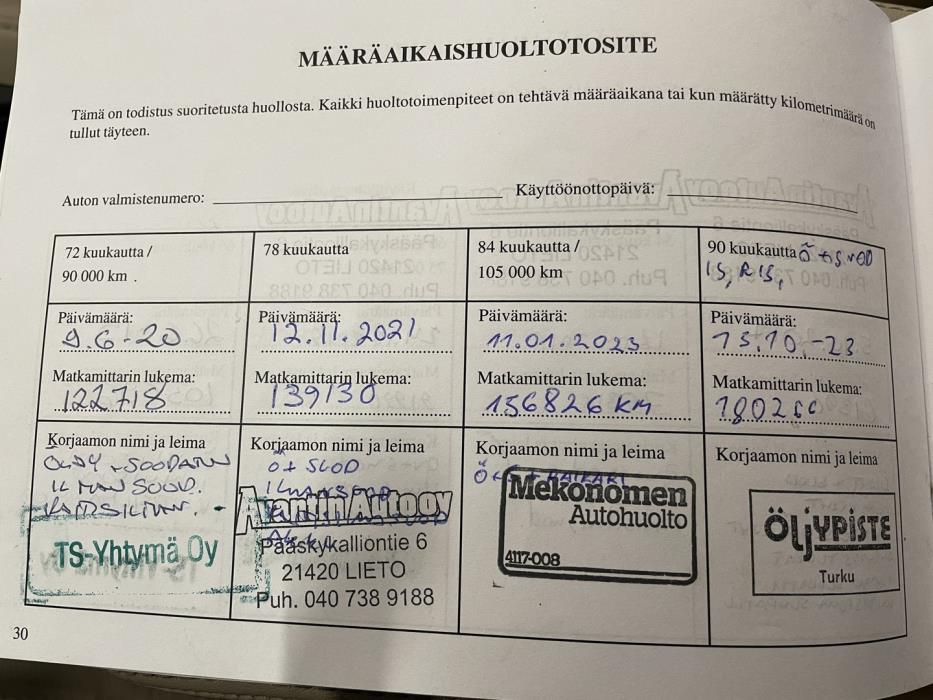 MÄÄRÄAIKAISHUOLTOTOSITE
Tämä on todistus suoritetusta huollosta. Kaikki huoltotoimenpiteet on tehtävä määräaikana tai kun määrätty kilometrimäärä on
tullut täyteen.
Auton valmistenumero:
Käyttöönottopäivä:
72 kuukautta /
90 000 km .
Päivämäärä:
9.6-20
Matkamittarin lukema:
122718
Korjaamon nimi ja leima
TS-Yhtymä Oy
78 kuukautta
Päivämäärä:
12.11.2021
Matkamittarin lukema:
139130
Korjaamon nimi ja leima
Ö+ SUOD
Avantin Auto oy
Pääskykalliontie 6
21420 LIETO
Puh. 040 738 9188
84 kuukautta /
105 000 km
Päivämäärä:
11.01.2023
Matkamittarin lukema:
156826 KM
Korjaamon nimi ja leima
Mekonomen
Autohuolto
4117-008
90 kuukautta
IS, RIS,
Päivämäärä:
15.10.-23
Matkamittarin lukema:
Korjaamon nimi ja leima
ÖLJYPISTE
Turku
30